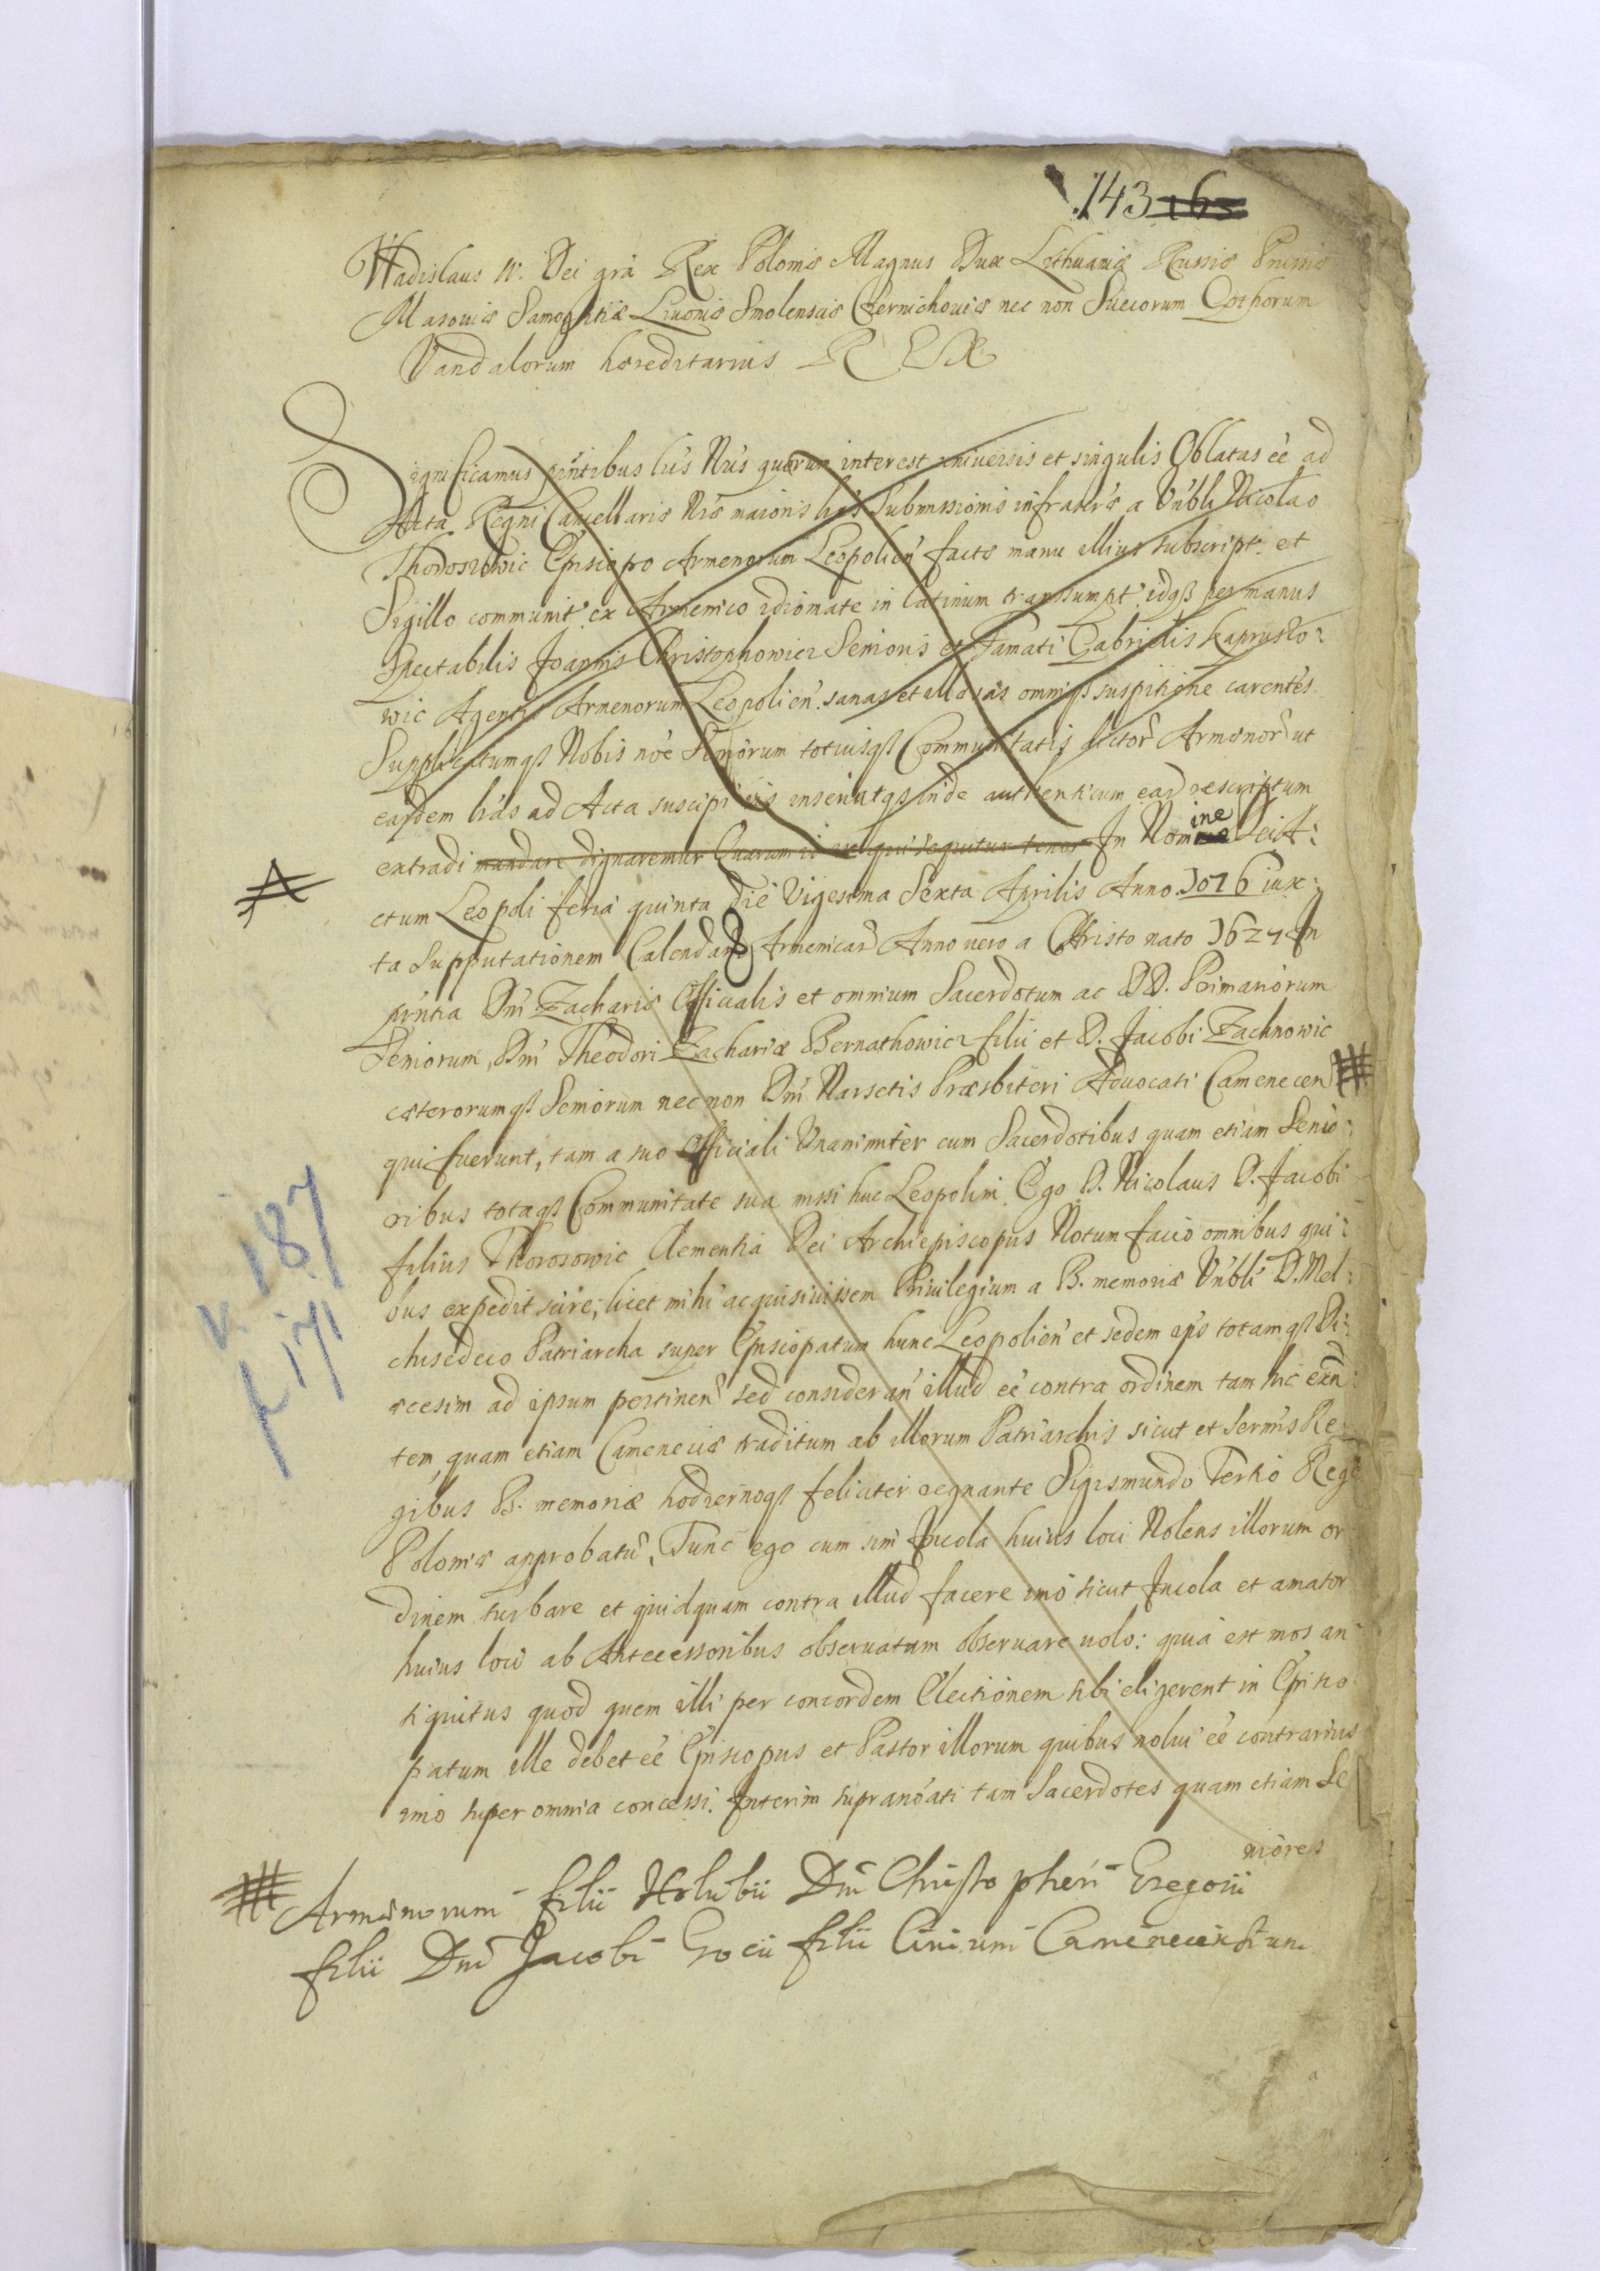 .143 163
Wladislaus IV. Dei grã Rex Poloniæ Magnus Dux Lithuaniæ Russiæ Prussiæ
Masoviæ Samogitiæ Livoniæ Smolensciæ Czernichoviæ nec non Suecorum Gothorum
Vandalorum hæreditarius REX
Significamus pñtibus lris Nris quorum interest universis et singulis Oblatas eé ad
Acta Regni Cancellariæ Nræ maioris lras Submissionis infrascrs a Vnbli Nicolao
Thorosowic Episcopo Armenorum Leopolien factæ manu illius subscript. et
Sigillo communit. ex Armenico idiomate in latinum transumpt. idqз per manus
Spectabilis Joannis Christophowicz Senioris et Famati Gabrielis Kaprusio:
wic Agentis Armenorum Leopolien. sanas et illæsas omniqз suspitione carentes
Supplicatumqз Nobis noẽ Seniorum totiusqз Communitatis dictor Armenor ut
easdem lras ad Acta suscipi iis inseri utqз inde authenticum eard rescriptum
extradi mandare dignaremur Quarum is est qui sequitur tenor In Nomine Dei A:
ctum Leopoli feria quinta die Vigesima Sexta Aprilis Anno 1076 iux:
ta Supputationem Calendar Armenicar Anno vero a Christo nato 1627 In
pñtia Dni Zachariæ Officialis et omnium Sacerdotum ac DD. Primariorum
Seniorum, Dni Theodori Zachariæ Bernathowicz filii et D. Jacobi Zachnowic
cæterorumqз Seniorum nec non Dni Narsetis Præsbiteri Advocati Camenecen
qui fuerunt, tam a suo Officiali Unanimiter cum Sacerdotibus quam etiam Senio:
ribus totaqз Communitate sua missi huc Leopolim. Ego D. Nicolaus D. Jacobi
filius Thorosowic Clementia Dei Archiepiscopus Notum facio omnibus qui:
bus expedit scire, licet mihi acquisivissem Privilegium a B. memoriæ Vnbli D. Mel:
chisedeco Patriarcha super Episcopatum hunc Leopolien et sedem eps totamqз Di:
æcesim ad ipsum pertinen sed consideran illud eé contra ordinem tam hic exñ:
tem, quam etiam Cameneciæ traditum ab illorum Patriarchis sicut et Sermis Re:
gibus B. memoriæ hodiernoqз feliciter regnante Sigismundo Tertio Rege
Poloniæ approbatu, Tunc ego cum sim Incola huius loci Nolens illorum or
dinem turbare et quidquam contra illud facere imo sicut Incola et amator
huius loci ab Antecessoribus observatum observare volo: quia est mos an
tiquitus quod quem illi per concordem Electionem sibi eligerent in Episco
patum ille debet eé Episcopus et Pastor illorum quibus nolui eé contrarius
imo super omnia concessi. Interim supranoati tam Sacerdotes quam etiam Se
niores
Armenorum filii Holubii Dni Christopheri Gregorii
filii Dni Jacobi Gocii filii Civium Camenecensium
v. 187
f 171